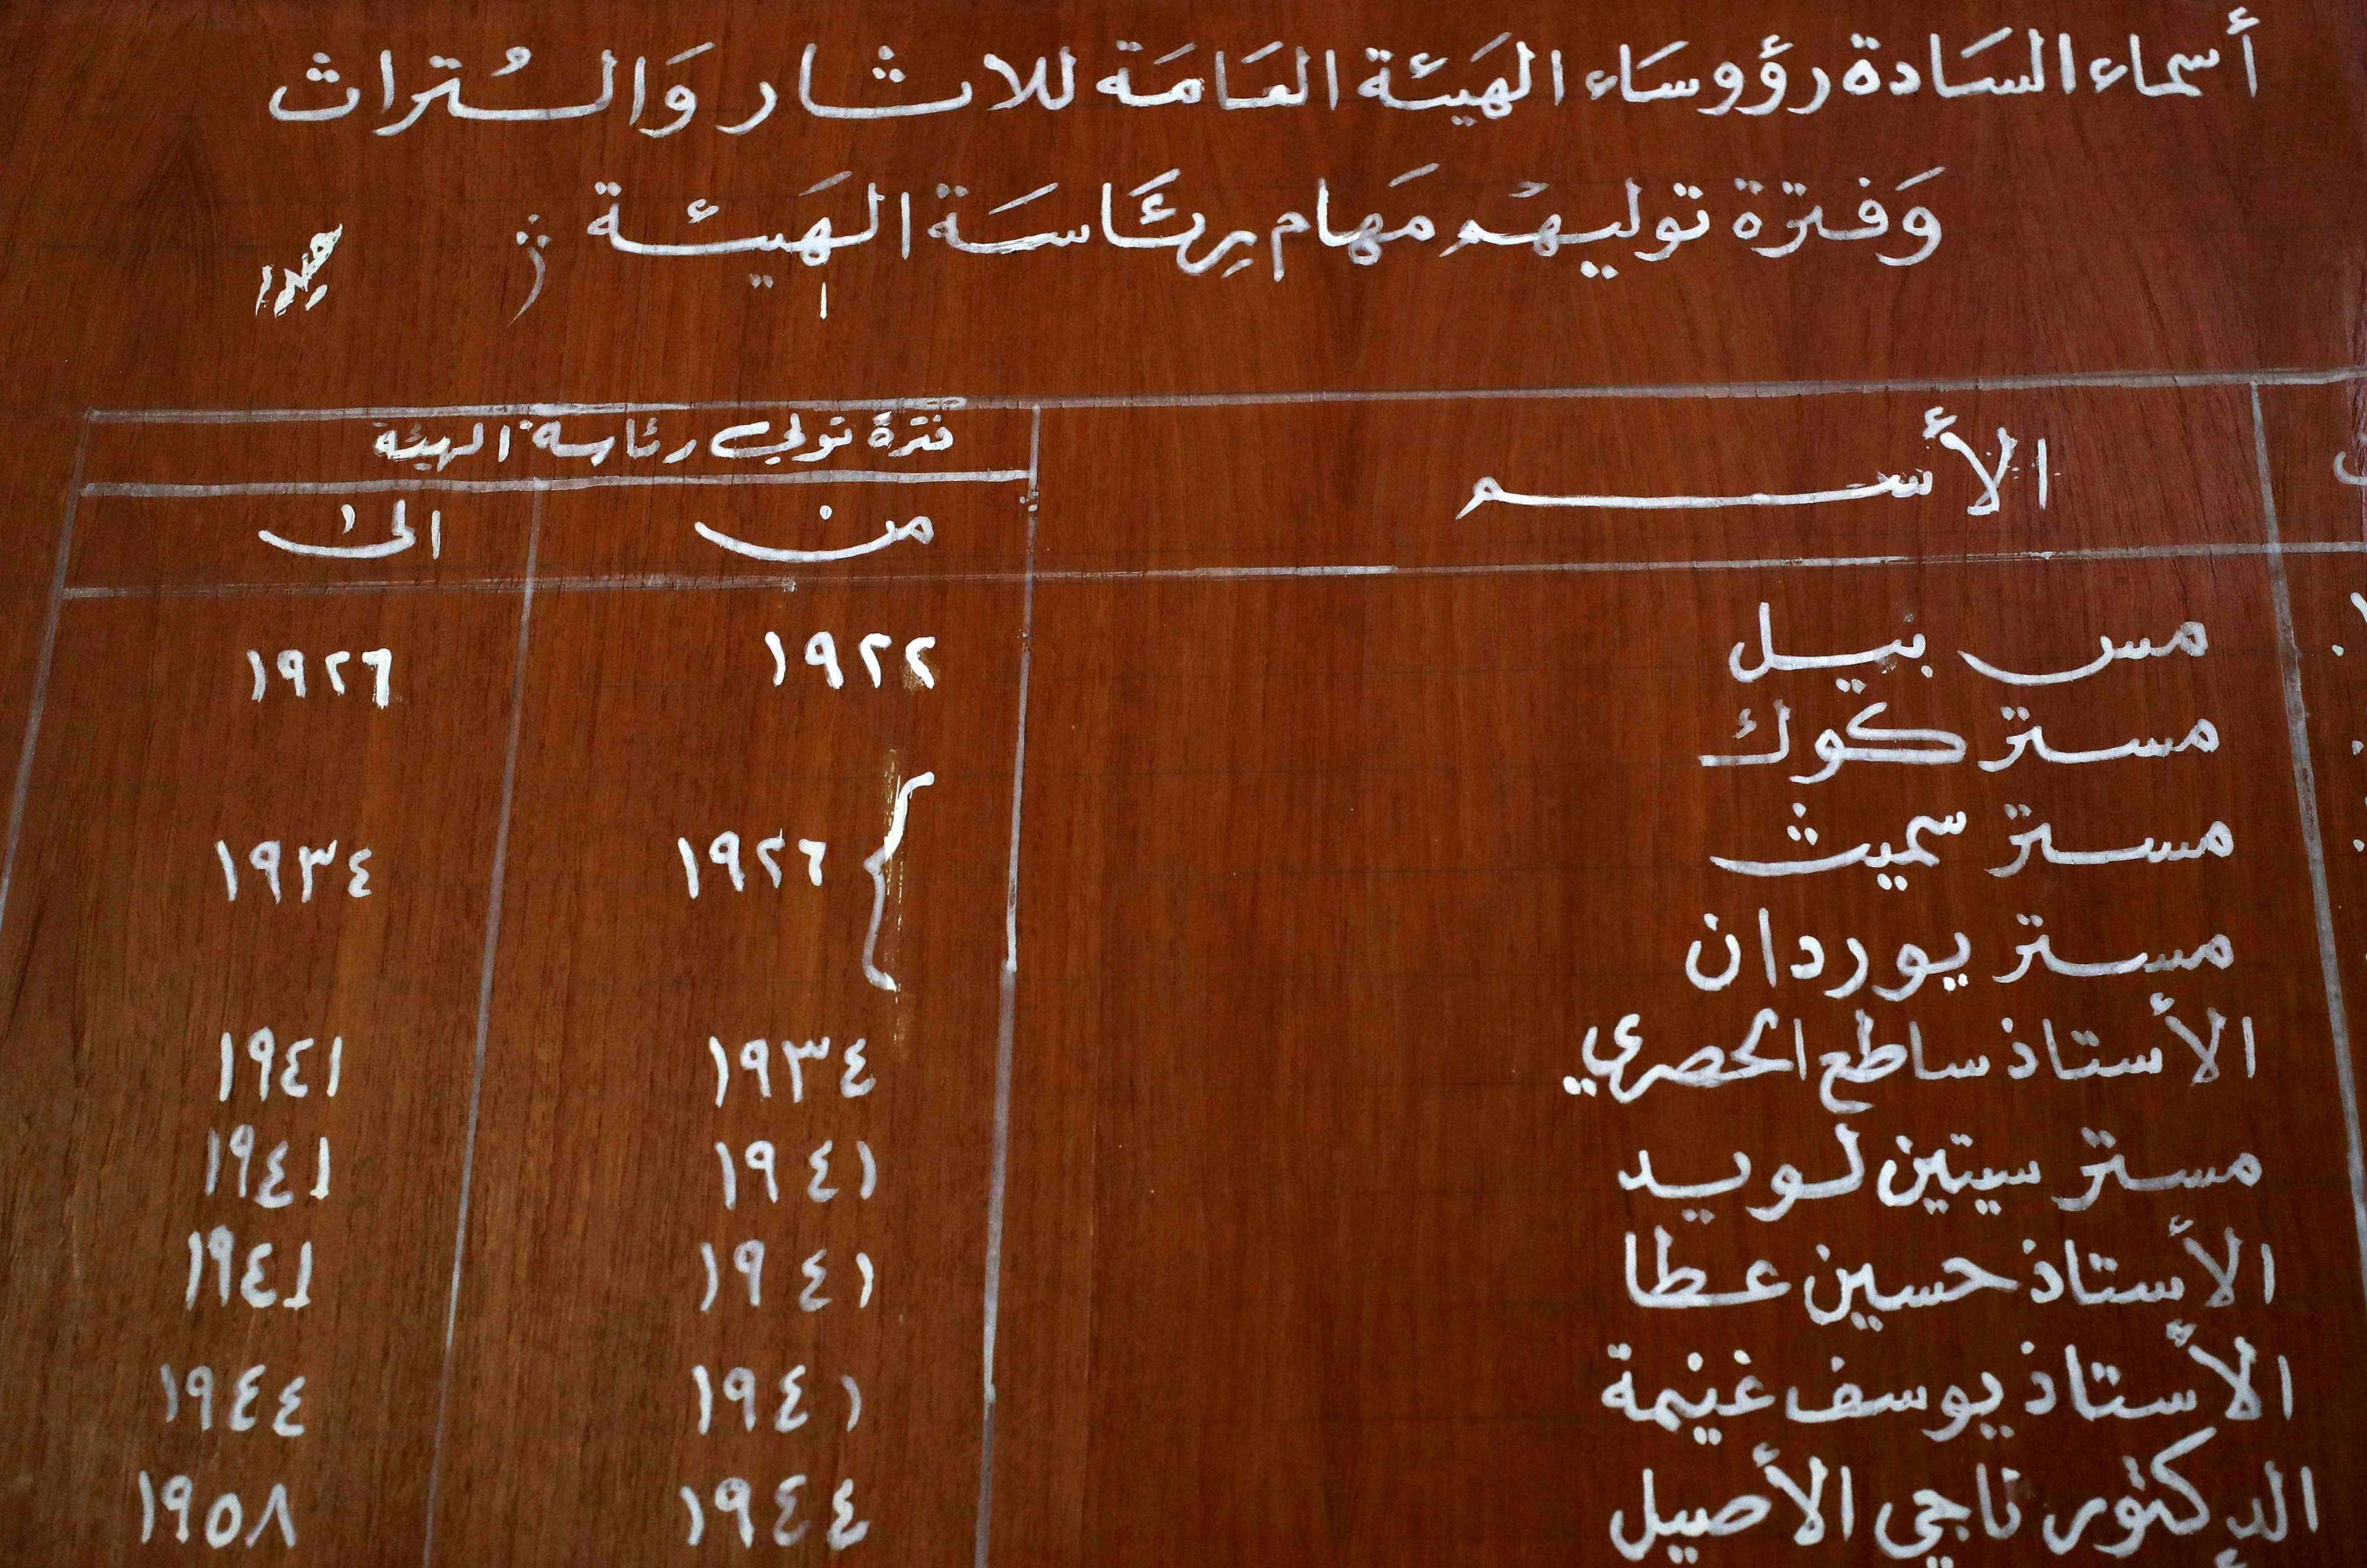 أسماء السَادة رؤوسَاء الهَيئة العَامَة للاثار وَالتُراث
وَفترة توليهم مَهام رِئَاسَة الهَيئة
فترة تولي رئاسة الهيئة
الأسم
من
الى
مس بيل ١٩٢٢ ١٩٢٦
مستر كوك
مستر سميث { ١٩٢٦ ١٩٣٤
مستر يوردان
الأستاذ ساطع الحصري ١٩٣٤ ١٩٤١
مستر سيتين لويد ١٩٤١ ١٩٤١
الأستاذ حسين عطا ١٩٤١ ١٩٤١
الأستاذ يوسف غنيمة ١٩٤١ ١٩٤٤
الدكتور ناجي الأصيل ١٩٤٤ ١٩٥٨